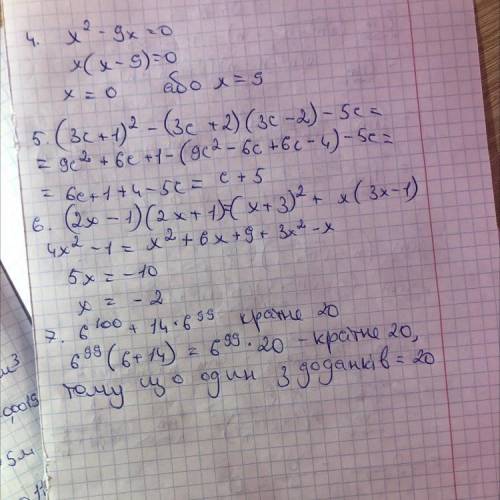 4. x² - 9x = 0
x(x - 9) = 0
x = 0 або x = 9
5. (3c + 1)² - (3c + 2)(3c - 2) - 5c =
= 9c² + 6c + 1 - (9c² - 6c + 6c - 4) - 5c =
= 6c + 1 + 4 - 5c = c + 5
6. (2x - 1)(2x + 1) = (x + 3)² + x(3x - 1)
4x² - 1 = x² + 6x + 9 + 3x² - x
5x = -10
x = -2
7. 6¹⁰⁰ + 14 · 6⁹⁹ кратне 20
6⁹⁹(6 + 14) = 6⁹⁹ · 20 - кратне 20,
тому що один з доданків = 20
м3
5м